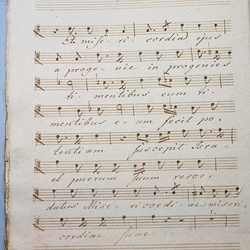 Et mise- ri- cordia ejus
a proge- nie in progenies
ti- mentibus eum ti-
mentibus e- um fecit po-
tentiam suscepit Isra-
el puerum suum recor-
datus Mise- ri cordi- ae miseri-
cordiae suae